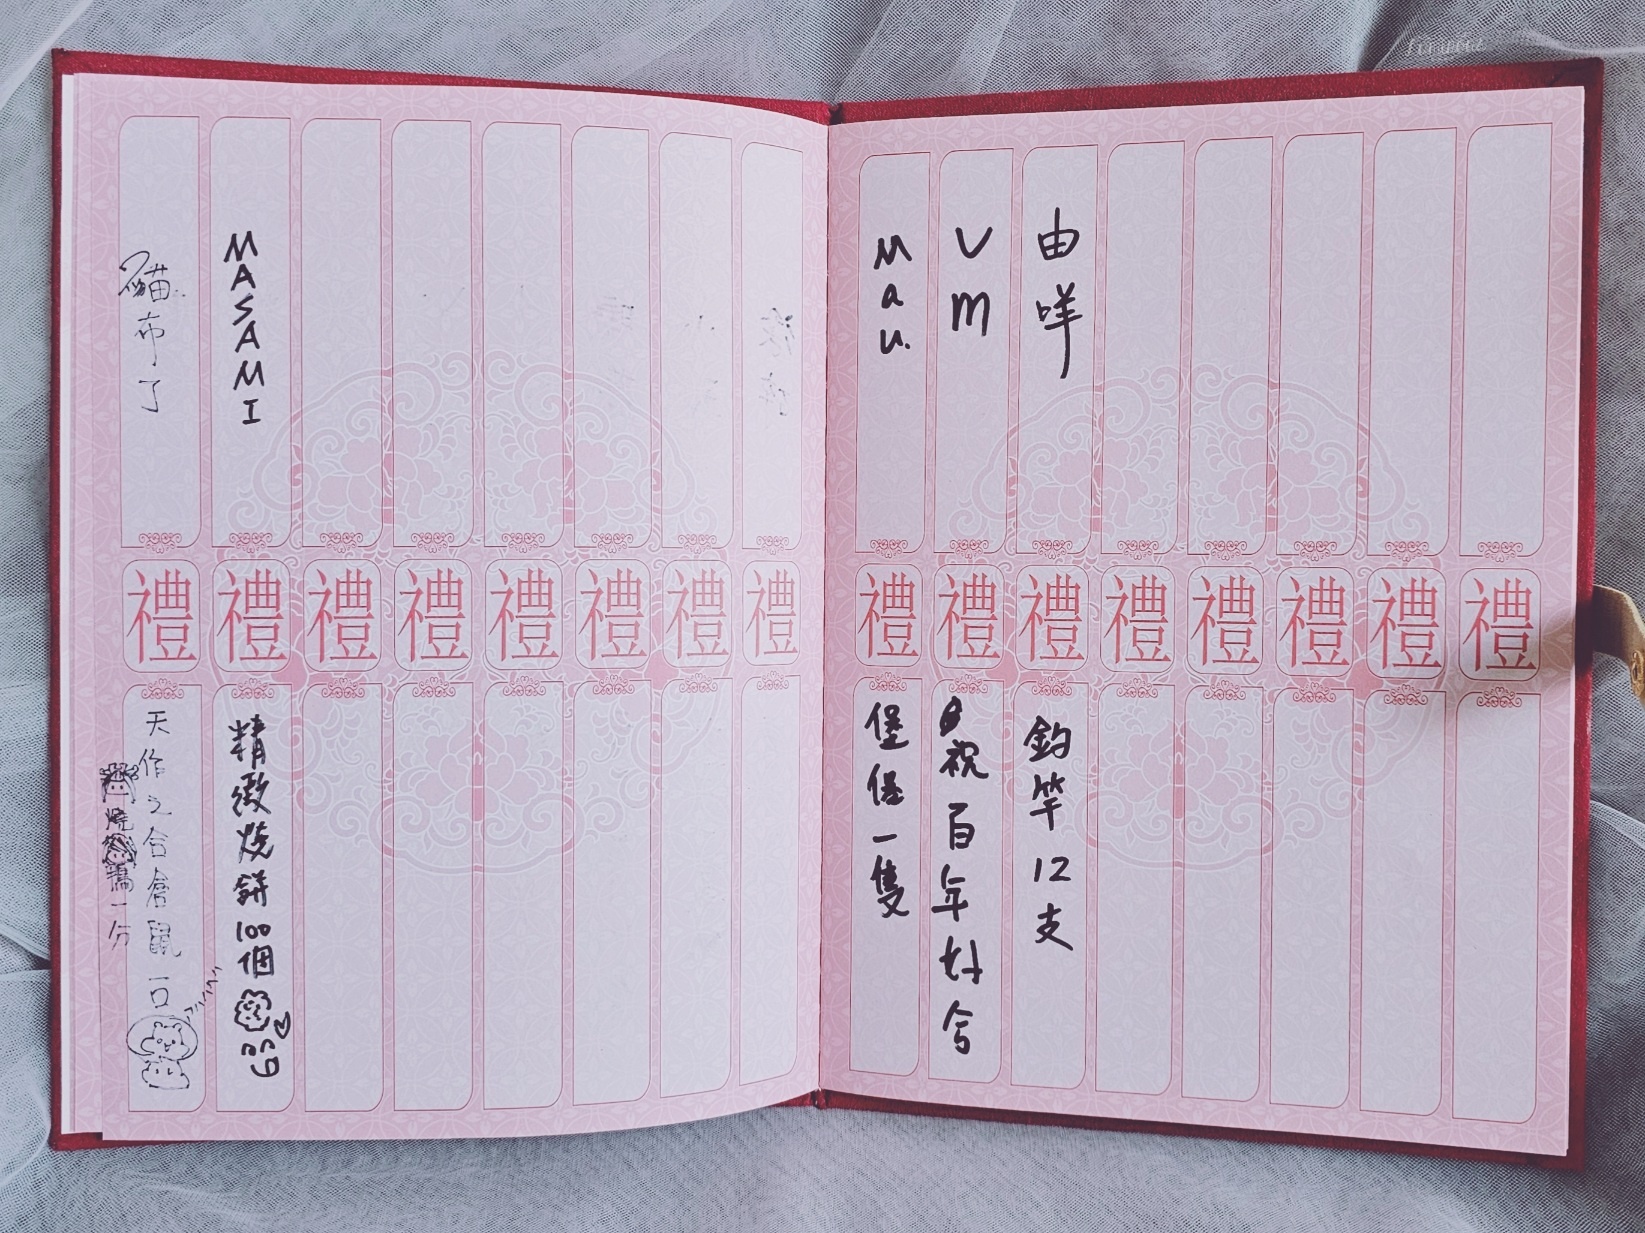 貓布了
禮
天作之合倉鼠一口
MASAMI
禮
精緻燒餅100個
禮
禮
禮
禮
禮
禮
Mau.
禮
堡堡一隻
VM
禮
祝百年好合
由咩
禮
釣竿12支
禮
禮
禮
禮
禮